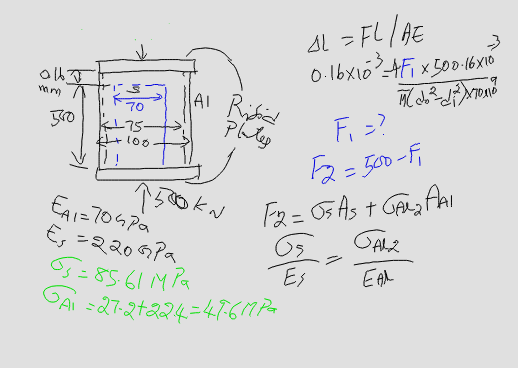 0.16
mm
500
S
70
75
100
Al
Rigid
Plates
500 kN
E_Al = 70 GPa
E_s = 220 GPa
σ_s = 85.61 MPa
σ_Al = 27.2 + 22.4 = 49.6 MPa
ΔL = FL/AE
0.16x10^-3 = 4F_1 x 500.16x10^-3 / π(d_o^2 - d_i^2)x70x10^9
F_1 = ?
F_2 = 500 - F_1
F_2 = σ_s A_s + σ_Al2 A_Al
σ_s / E_s = σ_Al2 / E_Al